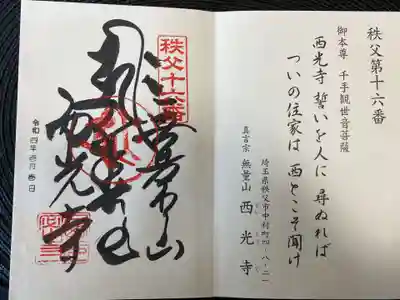 秩父第十六番
御本尊 千手観世音菩薩
西光寺 誓いを人に 尋ぬれば
ついの住家は 西とこそ聞け
埼玉県秩父市中村町四-八-二一
真言宗 無量山 西光寺
秩父十六番
無量山
西光寺